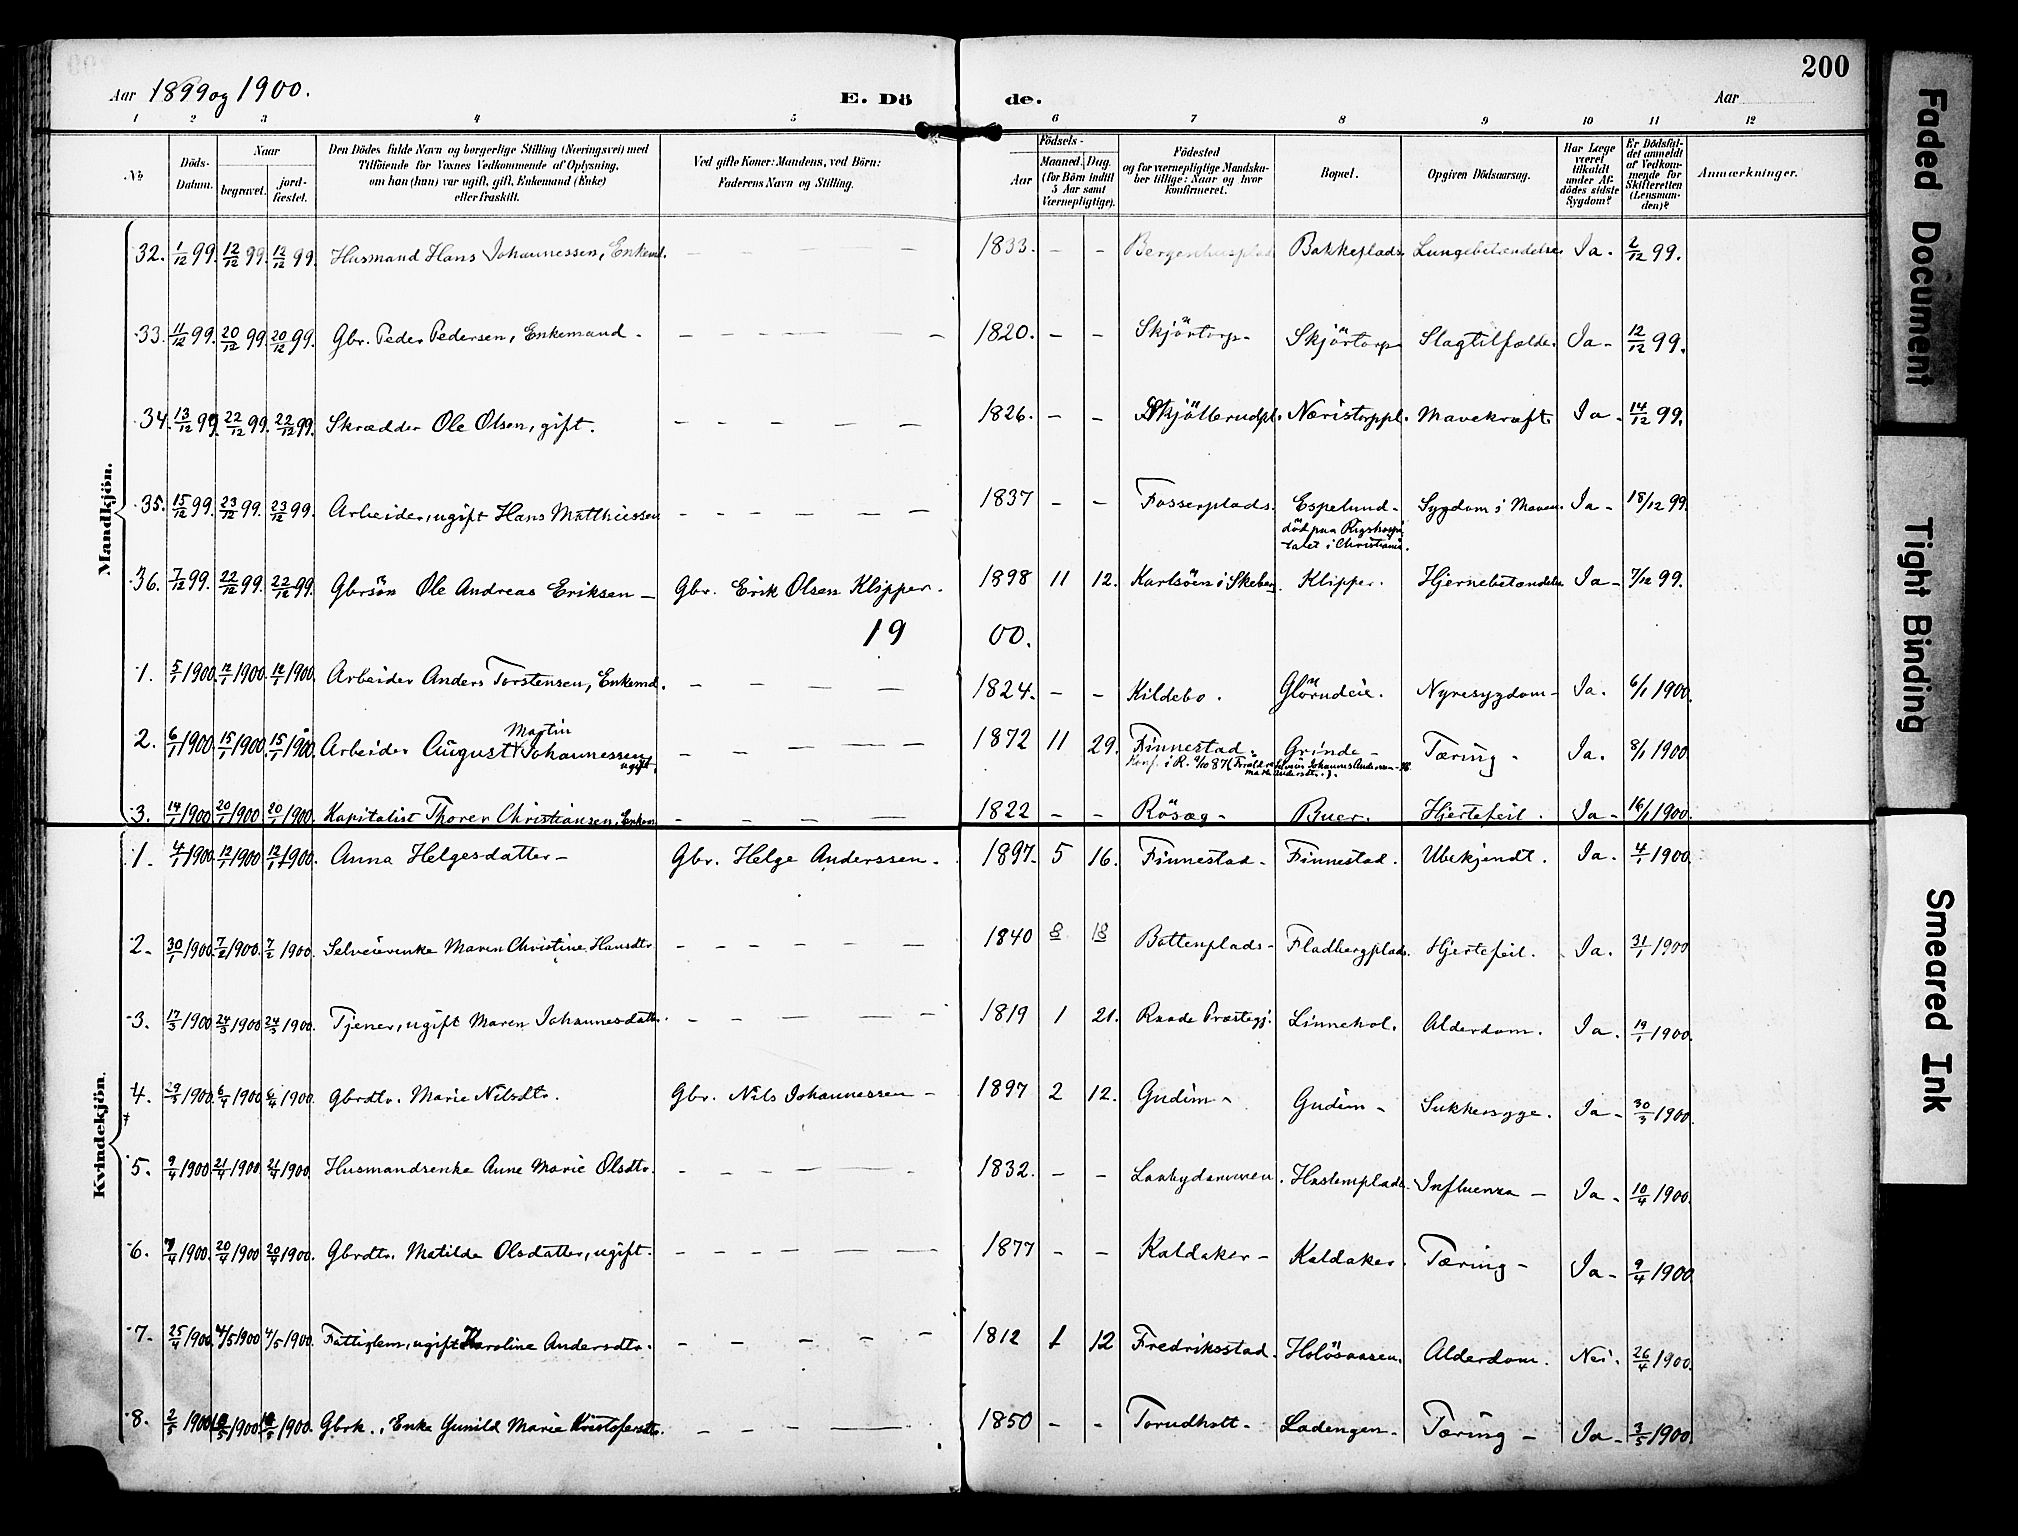 200
Aar 1899 og 1900. E. Dö de. Aar
1 2 3 4 5 6 7 8 9 10 11 12
No
Döds-Datum.
Naar
begravet.
jord-fæstet.
Den Dödes fulde Navn og borgerlige Stilling (Næringsvei) med
Tilföiende for Voxnes Vedkommende af Oplysning,
om han (hun) var ugift, gift, Enkemand (Enke)
eller fraskilt.
Ved gifte Koner: Mandens, ved Börn:
Faderens Navn og Stilling.
Födsels-
Aar
Maaned. Dag.
(for Börn indtil
5 Aar samt
Værnepligtige).
Födested
og for værnepligtige Mandska-
ber tillige: Naar og hvor
konfirmeret.
Bopæl.
Opgiven Dödsaarsag.
Har Læge
været
tilkaldt
under Af-
dödes sidste
Sygdom?
Er Dödsfal-
det anmeldt
af Vedkom-
mende for
Skifteretten
(Lensman-
den)?
Anmærkninger.
Mandkjön.
32. 1/12 99. 12/12 99. 12/12 99. Husmand Hans Johannessen, Enkemd. – – – – 1833. – – Bergenhusplad Bakkeplads. Lungebetændelse. Ja. 2/12 99.
33. 11/12 99. 20/12 99. 20/12 99. Gbr. Peder Pedersen, Enkemand. – – – – 1820. – – Skjörtorp. Skjörtorp Slagtilfælde. Ja. 12/12 99.
34. 13/12 99. 22/12 99. 22/12 99. Skrædder Ole Olsen, gift. – – – – – 1826. – – Skjölterudpl. Næristorppl. Mavekræft. Ja. 14/12 99.
35. 15/12 99. 23/12 99. 23/12 99. Arbeider, ugift Hans Matthiessen – – – – – 1837 – – Fosserplads. Espelund – Sygdom i Maven. Ja – 18/12 99.
död paa Rigshospi-
talet i Christiania.
36. 7/12 99. 22/12 99. 22/12 99. Gbrsön Ole Andreas Eriksen – Gbr. Erik Olsen Klipper. 1898 11 12. Karlsöen i Klipper. Hjernebetændelse Ja – 7/12 99.
1900.
1. 5/1 1900. 12/1 1900. 12/1 1900. Arbeider Anders Torstensen, Enkemd. – – – – 1824. – – Kildebo. Glörudeie. Nyresygdom – Ja. 6/1 1900.
2. 6/1 1900. 15/1 1900. 15/1 1900. Arbeider August Martin Johannessen ugift. – – – – – 1872 11 29. Finnestad. Grinde – Tæring – Ja. 8/1 1900.
Konf. i R. 87 Johannes Andersen
3. 14/1 1900. 20/1 1900 20/1 1900. Kapitalist Thorer Christiansen, Enkem. – – – – 1822 – – Rösæg – Buer. Hjertefeil. Ja – 16/1 1900.
Kvindekjön.
1. 4/1 1900. 12/1 1900 12/1 1900. Anna Helgesdatter – Gbr. Helge Anderssen. 1897. 5 16. Finnestad. Finnestad. Ubekjendt. Ja. 4/1 1900.
2. 30/1 1900. 7/2 1900. 7/2 1900. Selveierenke Maren Christine Hansdtr – – – – – 1840 8 18 Bottenplads – Fladbergplads. Hjertefeil. Ja. 31/1 1900
3. 17/3 1900 24/3 1900 24/3 1900. Tjener, ugift Maren Johannesdatter. – – – – – 1819 1 21. Raade Præstegj. Linnehol. Alderdom. Ja. 19/1 1900.
4. 29/3 1900. 6/4 1900 6/4 1900. Gbrdtr. Marie Nilsdtr. Gbr. Nils Johannessen – 1897 2 12. Gudim – Gudim – Sukkersyge. Ja – 30/3 1900.
5. 9/4 1900 21/4 1900 21/4 1900. Husmandsenke Anne Marie Olsdtr. – – – – – 1832. – – Laabydammen. Haslemplads. Influenza – Ja – 10/4 1900.
6. 7/4 1900. 20/4 1900 20/4 1900. Gbrdtr. Matilde Olsdatter, ugift. – – – – – 1877 – – Kaldaker – Kaldaker. Tæring – Ja – 9/4 1900.
7. 25/4 1900. 4/5 1900 4/5 1900. Fattiglem, ugift Karoline Andersdtr. – – – – – 1812 1 12 Fredriksstad. Holösaasen. Alderdom. Nei. 26/4 1900.
8. 2/5 1900 1900 1900. Gbrk., Enke Gunild Marie Kristofersdtr. – – – – 1850 – – Torudholt – Ladengen – Tæring – Ja – 3/5 1900.
Faded Document
Tight Binding
Smeared Ink